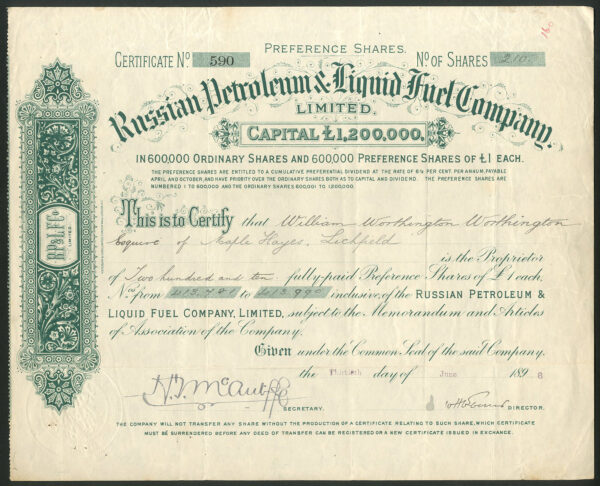 160
PREFERENCE SHARES.
CERTIFICATE No. 590
No. OF SHARES 210
Russian Petroleum & Liquid Fuel Company.
LIMITED.
CAPITAL £1,200,000.
IN 600,000 ORDINARY SHARES AND 600,000 PREFERENCE SHARES OF £1 EACH.
THE PREFERENCE SHARES ARE ENTITLED TO A CUMULATIVE PREFERENTIAL DIVIDEND AT THE RATE OF 6½ PER CENT. PER ANNUM, PAYABLE
APRIL AND OCTOBER, AND HAVE PRIORITY OVER THE ORDINARY SHARES BOTH AS TO CAPITAL AND DIVIDEND. THE PREFERENCE SHARES ARE
NUMBERED 1 TO 600,000 AND THE ORDINARY SHARES 600,001 TO 1,200,000.
R.P. & L.F. Co.
LIMITED
This is to Certify that William Worthington Worthington
Esquire of Maple Hayes, Lichfield
is the Proprietor
of Two hundred and ten fully-paid Preference Shares of £1 each,
Nos. from 413,781 to 413,990 inclusive, of the RUSSIAN PETROLEUM &
LIQUID FUEL COMPANY, LIMITED, subject to the Memorandum and Articles
of Association of the Company.
Given under the Common Seal of the said Company,
the Thirtieth day of June 1898
SECRETARY.
DIRECTOR.
THE COMPANY WILL NOT TRANSFER ANY SHARE WITHOUT THE PRODUCTION OF A CERTIFICATE RELATING TO SUCH SHARE, WHICH CERTIFICATE
MUST BE SURRENDERED BEFORE ANY DEED OF TRANSFER CAN BE REGISTERED OR A NEW CERTIFICATE ISSUED IN EXCHANGE.